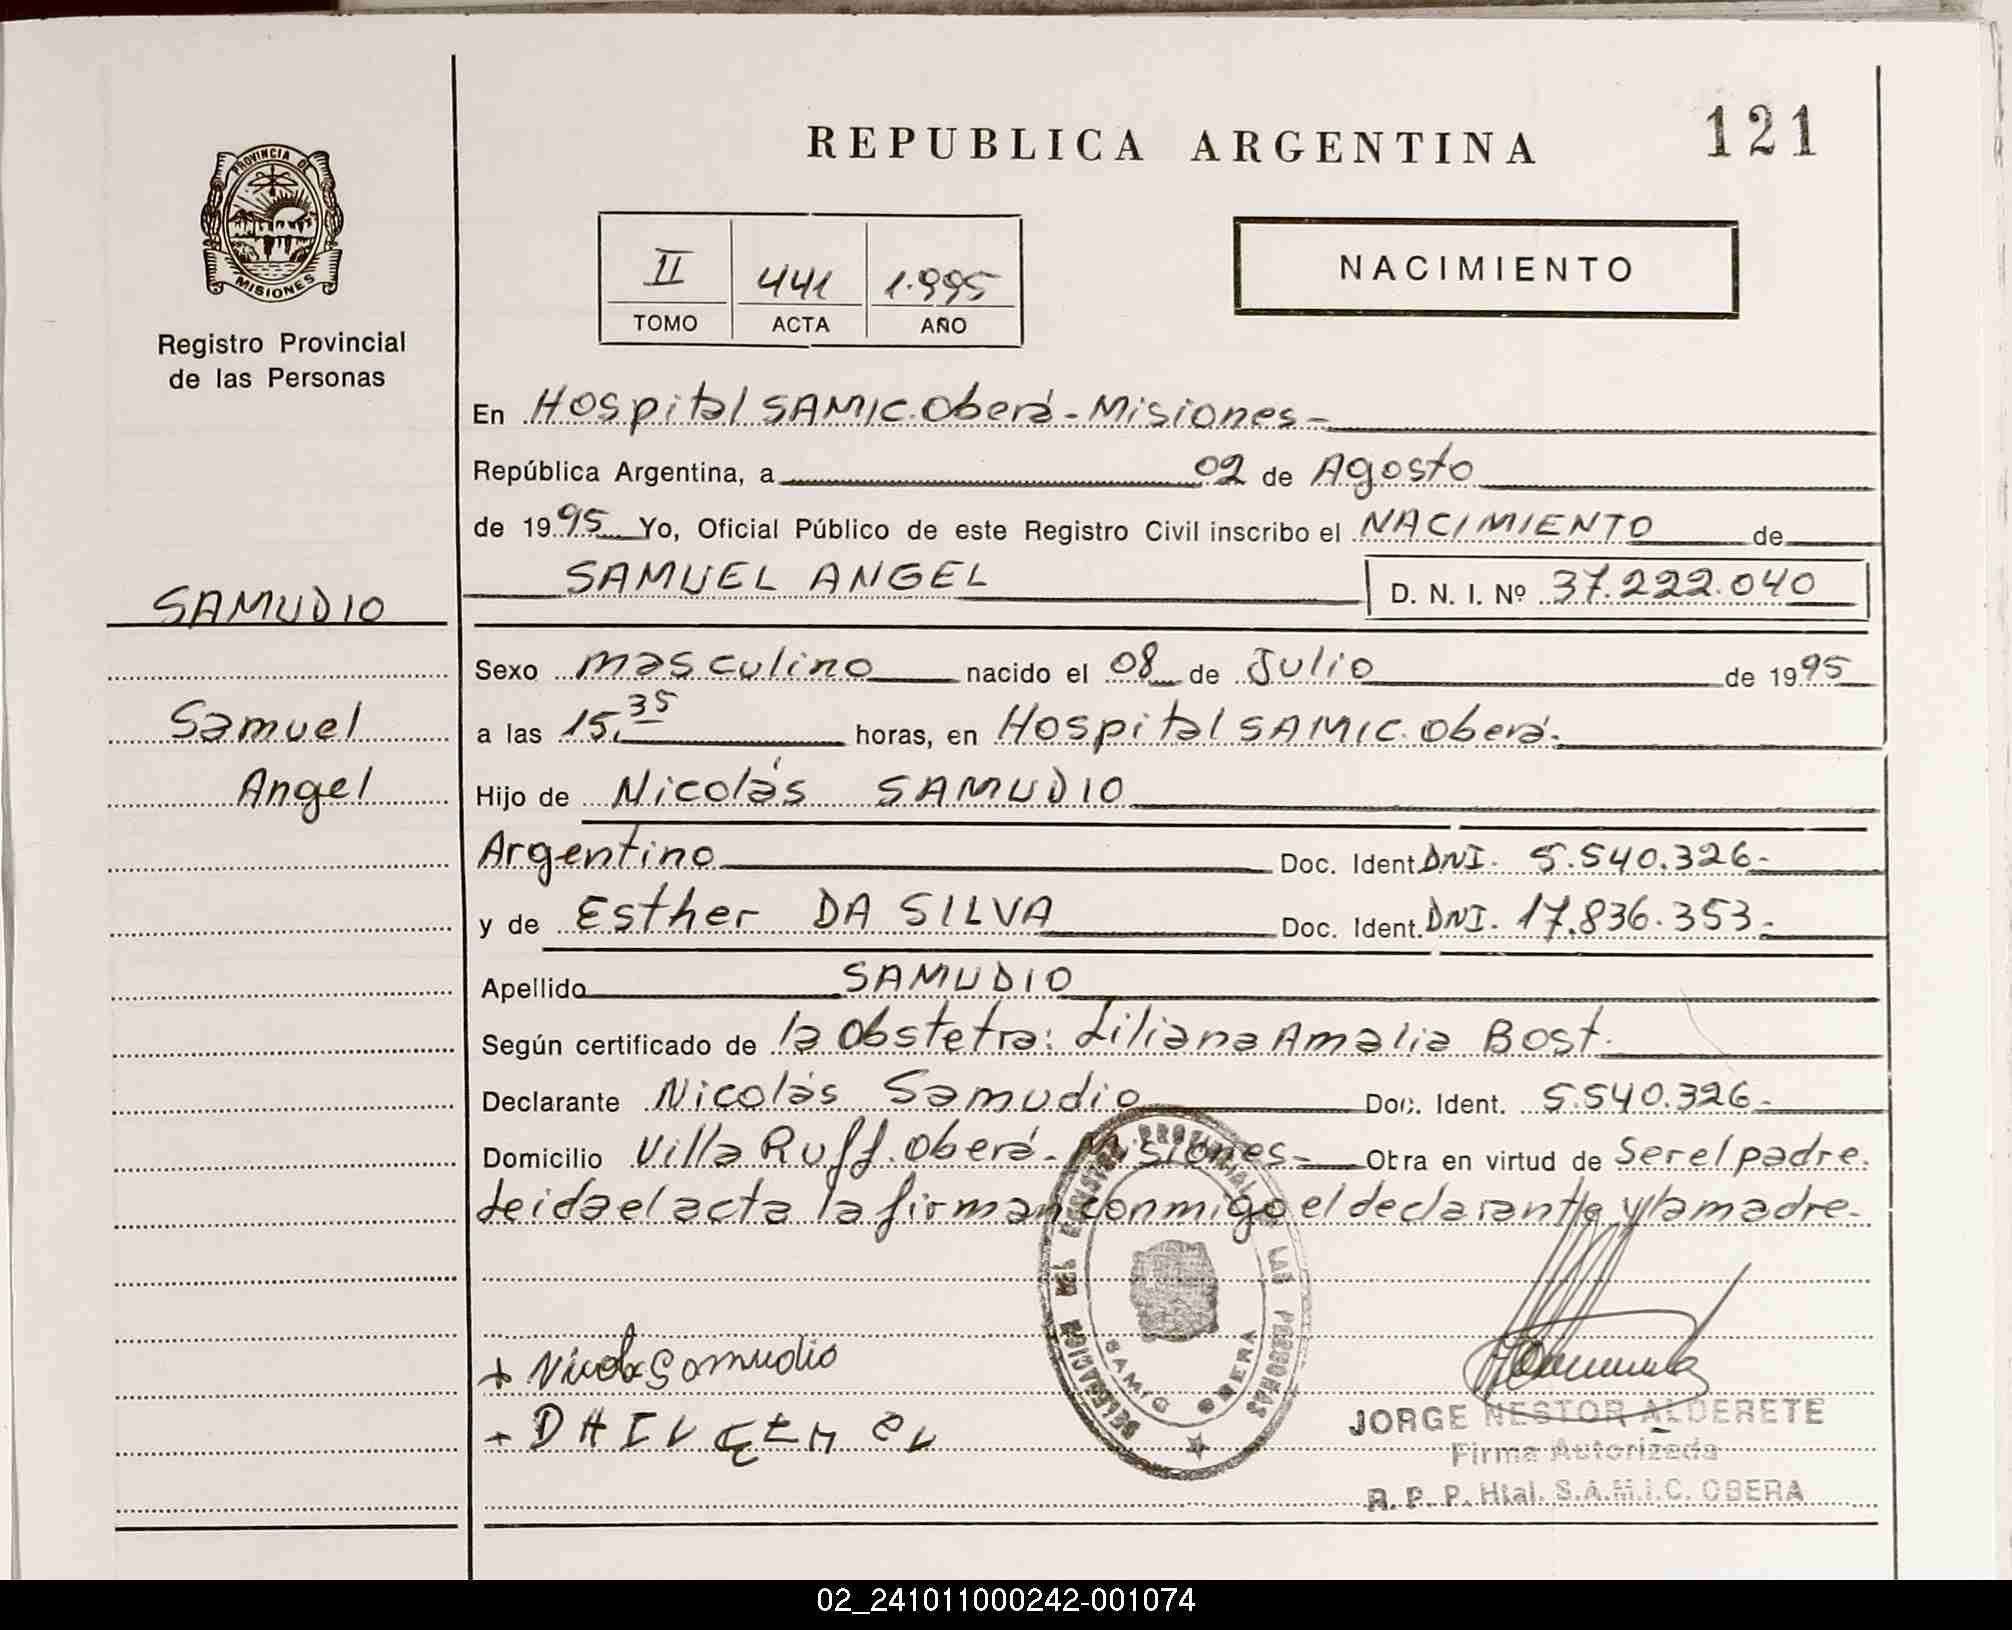 REPUBLICA ARGENTINA
121
PROVINCIA DE
MISIONES
Registro Provincial
de las Personas
II 441 1.995
TOMO ACTA AÑO
NACIMIENTO
En Hospital SAMIC. Oberá - Misiones -
República Argentina, a 02 de Agosto
de 1995 Yo, Oficial Público de este Registro Civil inscribo el NACIMIENTO de
SAMUEL ANGEL D. N. I. Nº 37.222.040
SAMUDIO
Samuel
Angel
Sexo masculino nacido el 08 de Julio de 1995
a las 15,35 horas, en Hospital SAMIC. Oberá.
Hijo de Nicolás SAMUDIO
Argentino Doc. Ident. DNI. 5.540.326-
y de Esther DA SILVA Doc. Ident. DNI. 17.836.353.-
Apellido SAMUDIO
Según certificado de la Obstetra: Liliana Amalia Bost.
Declarante Nicolás Samudio Doc. Ident. 5.540.326.-
Domicilio Villa Ruff. Oberá - Misiones - Otra en virtud de Ser el padre.
Leida el acta la firman conmigo el declarante y la madre.-
+ Samudio
DELEGACION REGISTRO PROVINCIAL DE LAS PERSONAS
SAMIC OBERA
JORGE NESTOR ALDERETE
Firma Autorizada
R. P. P. Htal. S.A.M.I.C. OBERA
02_241011000242-001074